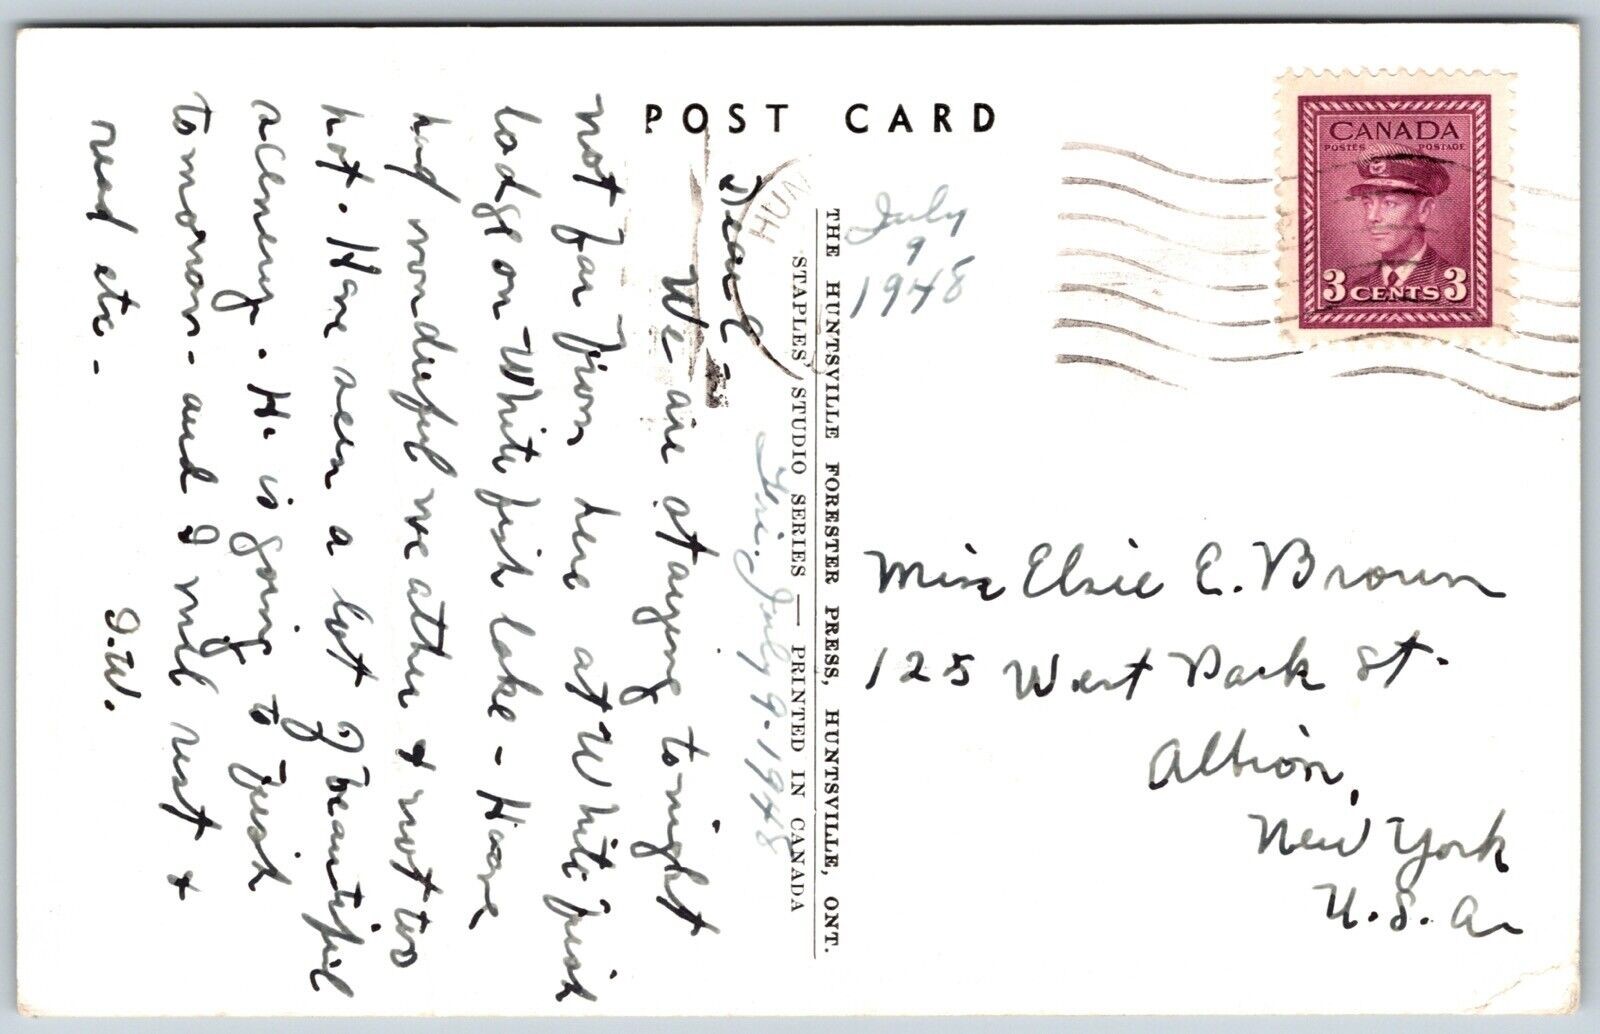 POST CARD
CANADA
POSTES POSTAGE
3 CENTS 3
HUN
July
9
1948
THE HUNTSVILLE FORESTER PRESS, HUNTSVILLE, ONT.
STAPLES' STUDIO SERIES — PRINTED IN CANADA
Fri. July 9-1948
Dear -
We are staying tonight
not far from here at White fish
lodge on White fish lake - Have
had wonderful weather & not too
hot. Have seen a lot of beautiful
scenery. H. is going to fish
tomorrow - and I will rest &
read etc -
I.W.
Miss Elsie E. Brown
125 West Park St.
Albion,
New York
U.S.A.